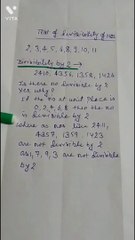 Test of Divisibility of nos
2, 3, 4, 5, 6, 8, 9, 10, 11
Divisibility by 2 →
2410, 4356, 1358, 1424
Is there no divisible by 2
Yes, why?
if the no at unit Place is
0, 2, 4, 6, 8 then the no
is divisible by 2
where as nos like 2411,
4357, 1359, 1423
are not divisible by 2
as 1, 7, 9, 3 are not divisible
by 2
VITA